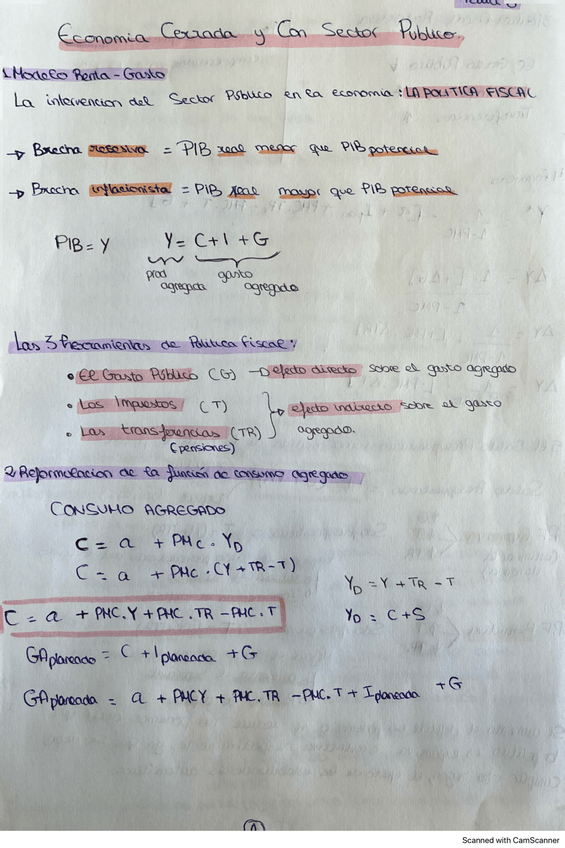 Economia Cerrada y Con Sector Publico.
1. Modelo Renta - Gasto
La intervencion del Sector Público en la economia: LA POLITICA FISCAL
→ Brecha resesiva = PIB real menor que PIB potencial
→ Brecha inflacionista = PIB real mayor que PIB potencial
PIB = Y Y = C + I + G
prod agregada gasto agregado
Las 3 herramientas de Politica fiscal:
• El Gasto Público (G) → efecto directo sobre el gasto agregado
• Los Impuestos (T)
→ efecto indirecto sobre el gasto agregado.
• Las transferencias (TR)
(pensiones)
2. Reformulacion de la función de consumo agregado
CONSUMO AGREGADO
C = a + PMC · YD
C = a + PMC · (Y + TR - T)
YD = Y + TR - T
C = a + PMC · Y + PMC · TR - PMC · T
YD = C + S
GAplaneado = C + Iplaneada + G
GAplaneada = a + PMCY + PMC · TR - PMC · T + Iplaneada + G
Scanned with CamScanner